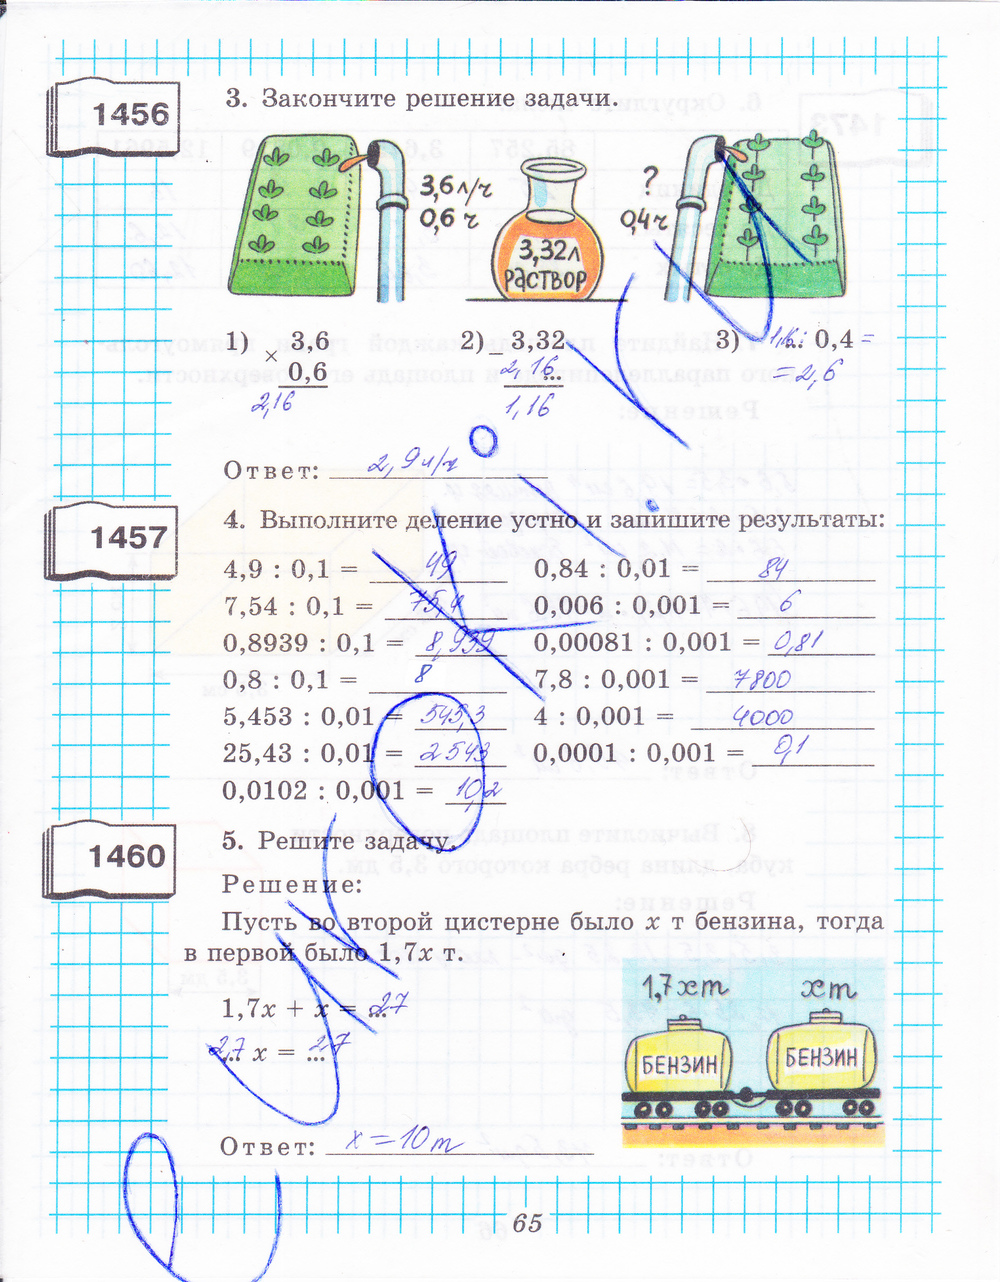 1456
3. Закончите решение задачи.
3,6 л/ч
0,6 ч
3,32 л
раствор
?
0,4 ч
1) × 3,6
0,6
2,16
2) − 3,32
2,16...
1,16
3) 1,16... : 0,4 =
= 2,6
Ответ: 2,9 л/ч
1457
4. Выполните деление устно и запишите результаты:
4,9 : 0,1 = 49
0,84 : 0,01 = 84
7,54 : 0,1 = 75,4
0,006 : 0,001 = 6
0,8939 : 0,1 = 8,939
0,00081 : 0,001 = 0,81
0,8 : 0,1 = 8
7,8 : 0,001 = 7800
5,453 : 0,01 = 545,3
4 : 0,001 = 4000
25,43 : 0,01 = 2543
0,0001 : 0,001 = 0,1
0,0102 : 0,001 = 10,2
1460
5. Решите задачу.
Решение:
Пусть во второй цистерне было x т бензина, тогда
в первой было 1,7x т.
1,7x т
x т
БЕНЗИН
БЕНЗИН
1,7x + x = ... 27
2,7 x = ... 27
Ответ: x = 10 т
65